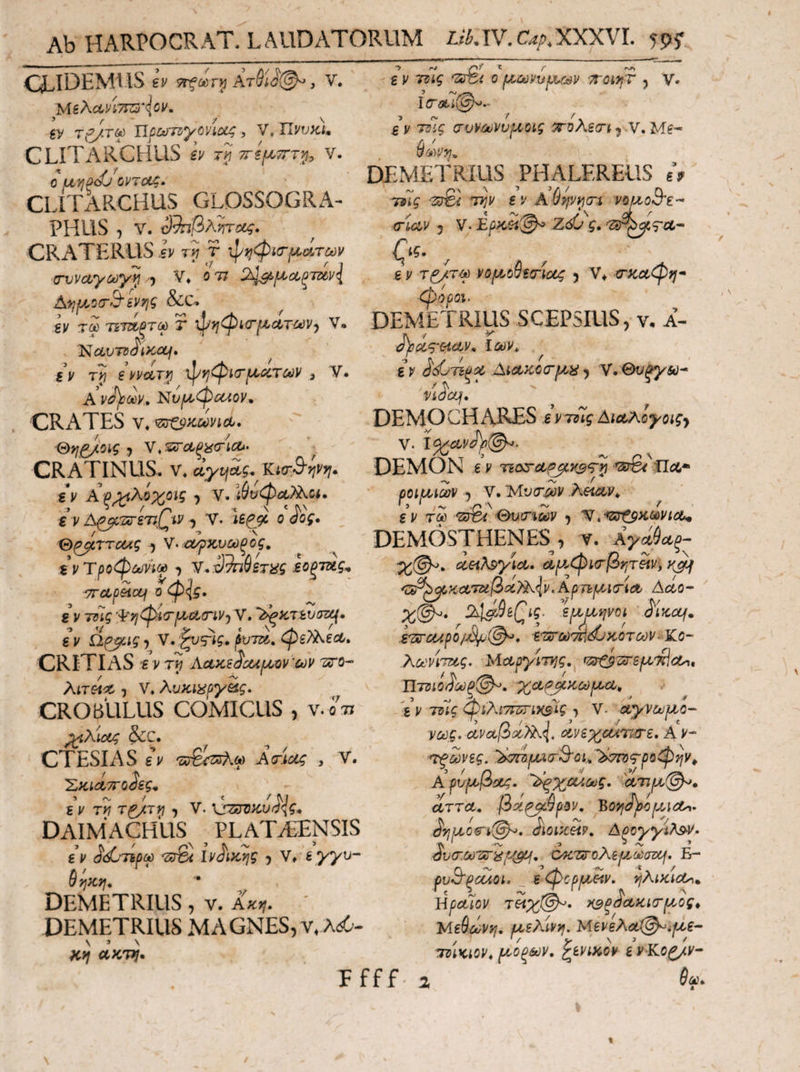 Ab HARPOCRAT. LAUDATORUM Lib. IV. Cap. XXXVI. 595
CLIDEMUS ἐν πρώτῃ Ἀτθίδ@, v.
Μελανίππειον.
ἐν τρίτῳ Πρωτογονίας, v. Πνυκί.
CLITARCHUS ἐν τῇ πέμπτῃ, v.
ὁ μηροὺ ὄντας.
CLITARCHUS GLOSSOGRA-
PHUS, v.
CRATERUS ἐν τῇ τ ψηφισμάτων
συναγωγῇ, v. ὅτι διαμαρτάνει
Δημοσθένης &c.
ἐν τῷ τετάρτῳ τ ψηφισμάτων, v.
Ναυτοδίκαι.
ἐν τῇ ἐννάτῃ ψηφισμάτων, v.
Ἄνδρων. Νύμφαιον.
CRATES v. προκώνια.
Θηρίοις, v. παρουσία.
CRATINUS. v. ἀγυιάς. Κισθήνη.
ἐν Ἀρχιλόχοις, v. ἰθύφαλλοι.
ἐν Δραπέτισιν, v. ἱερὰ ὁδός.
Θράτταις, v. ἀρκυωρός.
ἐν Τροφωνίῳ, v. ἐπιθέτους ἑορτάς.
παρεῖαι ὄφεις.
ἐν τοῖς Ψηφίσμασιν, v. ἀρκτεῦσαι.
ἐν Ὥραις, v. ξυστίς. ῥυτά. φελλέα.
CRITIAS ἐν τῇ Λακεδαιμονίων πο-
λιτείᾳ, v. λυκιουργεῖς.
CROBULUS COMICUS, v. ὅτι
χιλίας &c.
CTESIAS ἐν περίπλῳ Ἀσίας, v.
Σκιάποδες.
ἐν τῇ τρίτῃ, v. Ὑποκυδεῖς.
DAIMACHUS PLATÆENSIS
ἐν δευτέρῳ περὶ Ἰνδικῆς, v. ἐγγυ-
θήκη.
DEMETRIUS, v. Ἄκη.
DEMETRIUS MAGNES, v. λευ-
κὴ ἀκτή.
ἐν τοῖς περὶ ὁμωνύμων ποιητ, v.
Ἰσαῖ@.
ἐν τοῖς συνωνύμοις πόλεσι, v. Με-
θώνη.
DEMETRIUS PHALEREUS ἐν
τοῖς περὶ τὴν ἐν Ἀθήνησι νομοθε-
σίαν, v. Ἑρκεῖ@ Ζεύς. παράστα-
σις.
ἐν τρίτῳ νομοθεσίας, v. σκαφη-
φόροι.
DEMETRIUS SCEPSIUS, v. Ἀ-
δράστειαν. Ἴων.
ἐν δευτέρᾳ Διακόσμου, v. Θυργω-
νίδαι.
DEMOCHARES ἐν τοῖς Διαλόγοις,
v. Ἴσχανδρ@.
DEMON ἐν τεσσαρακοστῇ περὶ Πα-
ροιμιῶν, v. Μυσῶν λείαν.
ἐν τῷ περὶ Θυσιῶν, v. προκώνια.
DEMOSTHENES, v. Ἀγάθαρ-
χ@. ἀειλογία. ἀμφισβητεῖν, καὶ
παρακαταβάλλειν. Ἀρτεμισία Δαό-
χ@. διάθεσις. ἔμμηνοι δίκαι.
ἐπαυρόμεν@. ἐπωπτευκότων. Κο-
λωνίτας. Μαργίτης. προπεμπτα.
Πτοιόδωρ@. χαράκωμα.
ἐν τοῖς φιλιππικοῖς, v. ἀγνωμό-
νως. ἀναβάλλει. ἀνεχαίτισε. Ἀν-
τρῶνες. ἀπόμισθοι. ἀποστροφήν.
Ἀρύμβας. ἀρχαίως. ἄτιμ@.
ἄττα. βάραθρον. Βοηδρόμια.
δημόσι@. διοικεῖν. Δρογγίλον.
δυσωποῦμαι. ἐκπολεμῶσαι. Ἐ-
ρυθραῖοι. ἐφορμεῖν. ἡλικία.
Ἡραῖον τεῖχ@. κορδακισμός.
Μεθώνη. μελίνη. Μενέλα@. με-
τοίκιον. μόρων. ξενικὸν ἐν Κορίν-
Ffff 2 θῳ.